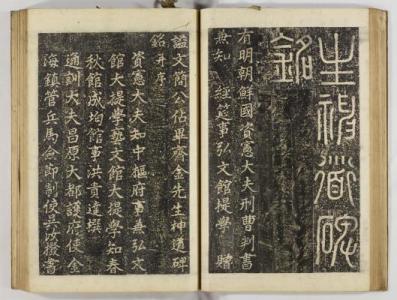 生神道碑
銘
有明朝鮮國資憲大夫刑曹判書
兼知 經筵事弘文館提學 贈
謚文簡公佔畢齋金先生神道碑
銘并序
資憲大夫知中樞府事兼弘文
館大提學藝文館大提學知春
秋館成均館事洪貴達撰
通訓大夫昌原大都護府使金
海鎮管兵馬僉節制使吳 書